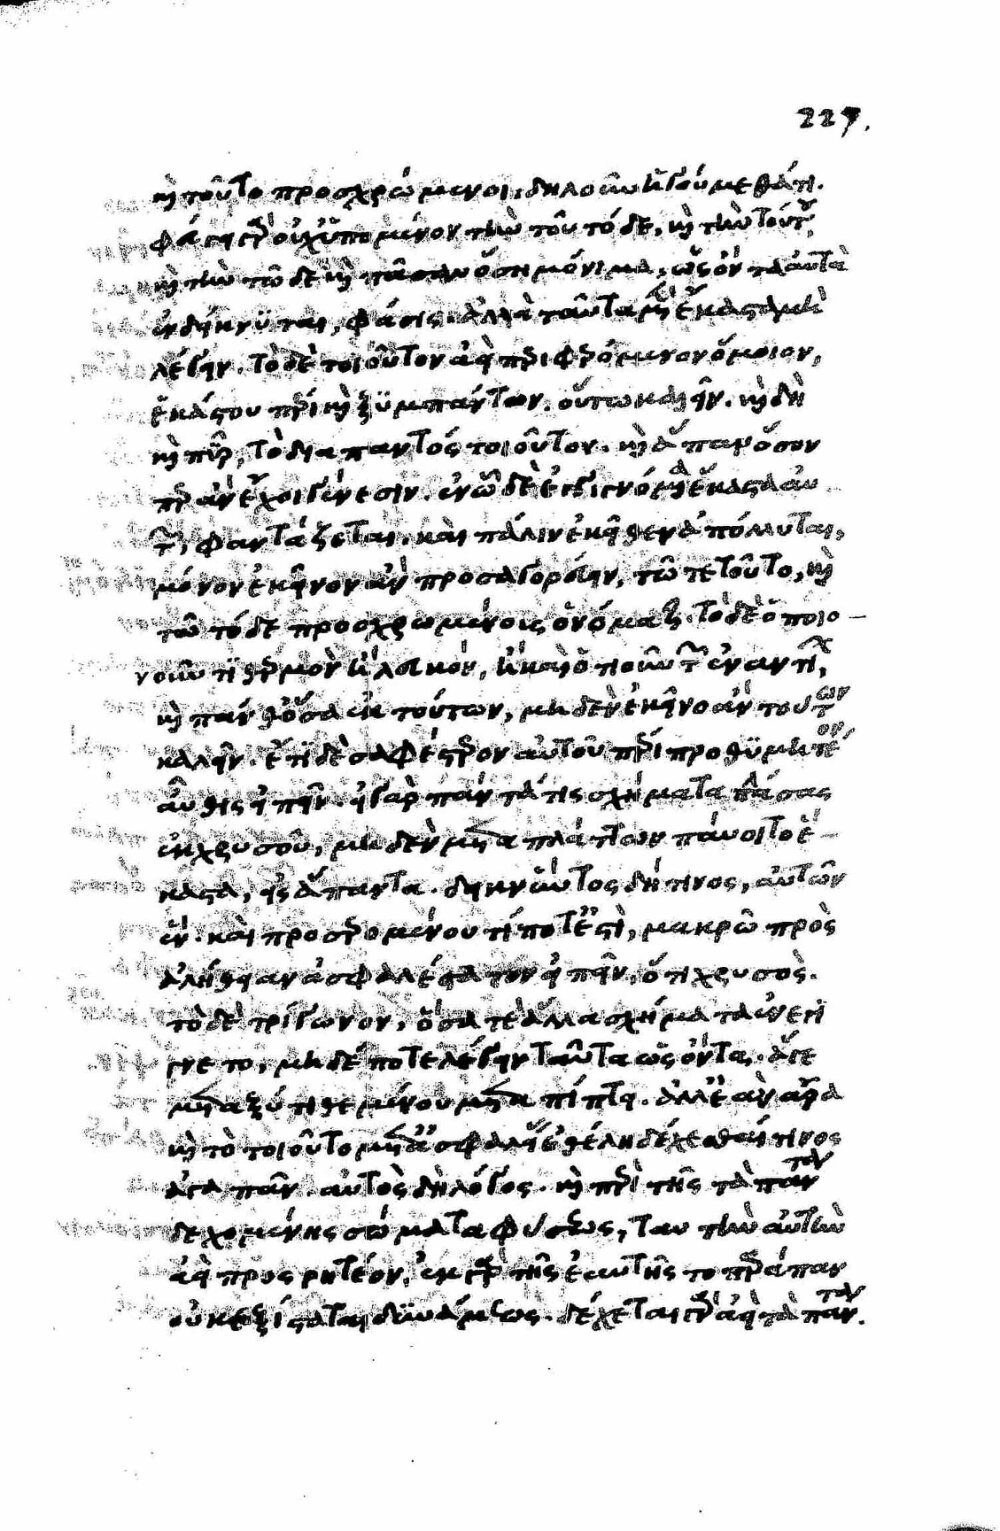 227.
καὶ τοῦτο προσχρώμενοι, δηλοῦν ἡγούμεθά τι.
φεύγει γὰρ οὐχ ὑπομένον τὴν τοῦ τόδε, καὶ τὴν τούτου,
καὶ τὴν τῶδε καὶ πᾶσαν ὅση μόνιμα, ὡς ὄντα αὐτὰ
ἐνδείκνυται, φάσις. ἀλλὰ ταῦτα μὲν ἕκαστα μὴ
λέγειν. τὸ δὲ τοιοῦτον ἀεὶ περιφερόμενον ὅμοιον,
ἑκάστου πέρι καὶ ξυμπάντων. οὕτω καλεῖν. καὶ δὴ
καὶ πῦρ, τὸ διαπαντὸς τοιοῦτον. καὶ ἅπαν ὅσον
περ ἂν ἔχοι γένεσιν. ἐν ᾧ δὲ ἐγγιγνόμενα ἕκαστα αὐ
τῶν, φαντάζεται, καὶ πάλιν ἐκεῖθεν ἀπόλλυται,
μόνον ἐκεῖνον ἂν προσαγορεύειν, τῶ τε τοῦτο, καὶ
τῶ τόδε προσχρωμένοις ὀνόματι. τὸ δὲ ὁποιο-
νοῦν τι θερμὸν ἢ λευκὸν, ἢ καὶ ὁτιοῦν τῶν ἐναντίων,
καὶ πάνθ' ὅσα ἐκ τούτων, μηδὲν ἐκεῖνο ἂν τούτων
καλεῖν. ἔτι δὲ σαφέστερον αὐτοῦ πέρι προθυμητέον
αὖθις εἰπεῖν. εἰ γὰρ πάντά τις σχήματα πλάσας
ἐκ χρυσοῦ, μηδὲν μεταπλάττων παύοιτο ἕ-
καστα, εἰς ἅπαντα. δεικνύντος δή τινος, αὐτῶν
ἕν. καὶ προσερομένου τί ποτ' ἐστὶ, μακρῶ πρὸς
ἀλήθειαν ἀσφαλέστατον εἰπεῖν, ὅτι χρυσὸς.
τὸ δὲ τρίγωνον, ὅσα τὲ ἄλλα σχήματα ἐνεγί
γνετο, μηδέποτε λέγειν ταῦτα ὡς ὄντα, ἅ γε
μεταξὺ τιθεμένου μεταπίπτει. ἀλλ' ἐὰν ἄρα
καὶ τὸ τοιοῦτο μετ' ἀσφαλείας ἐθέλῃ δέχεσθαί τινος
ἀγαπᾶν. αὐτὸς δὴ λόγος. καὶ περὶ τῆς τὰ πάντα
δεχομένης σώματα φύσεως, ταυτὴν αὐτὴν
ἀεὶ προσρητέον. ἐκ γὰρ τῆς ἑαυτῆς τοπεράπαν
οὐκ ἐξίσταται δυνάμεως. δέχεται γὰρ ἀεὶ τὰ πάντα.